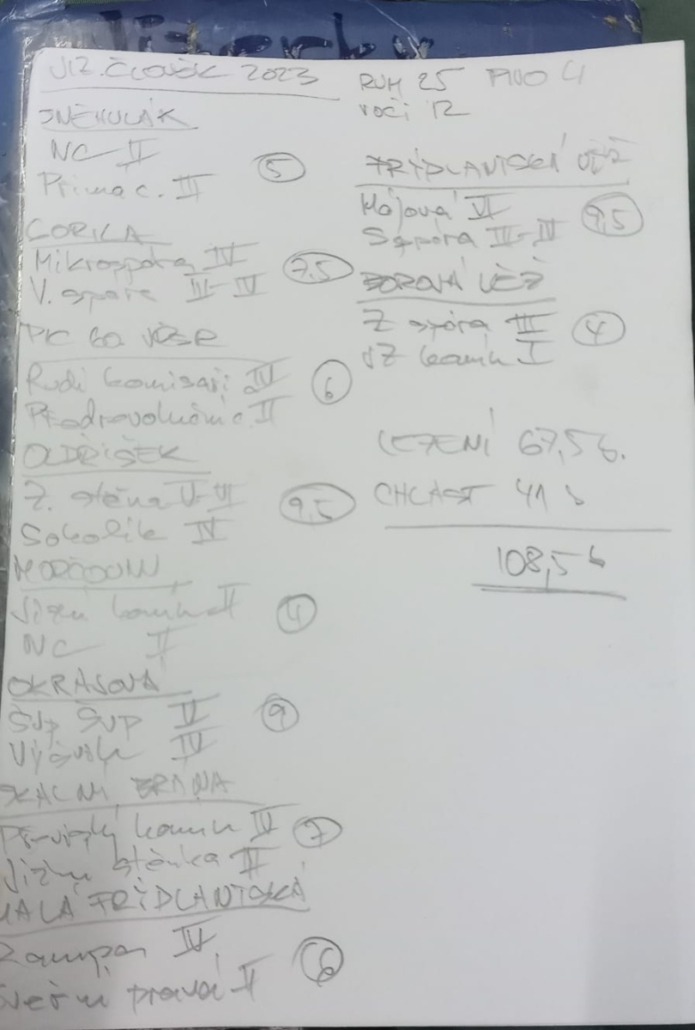 JIZ. ČLOVĚK 2023
SNĚHULÁK
NC II
Prima c. III
5
GORILA
Mikrospára IV
V. spára III-IV
7,5
Rudí komisaři IV
II
6
OLDŘIŠEK
Z. stěna V-VI
Sokolík IV
9,5
Jižní komín II
NC II
4
OKRASOVÁ
Šup šup V
IV
9
SKALNÍ BRÁNA
komín IV
Jižní stěnka III
7
MALÁ FRÝDLANTSKÁ
IV
pravá II
6
RUM 25 PIVO 4
VOČI 12
FRÝDLANTSKÁ VĚŽ
Hájová VI
S spára III-IV
9,5
BOROVÁ VĚŽ
Z spára III
JZ komín I
4
LEZENÍ 67,5 b.
CHLAST 41 b
108,5 b